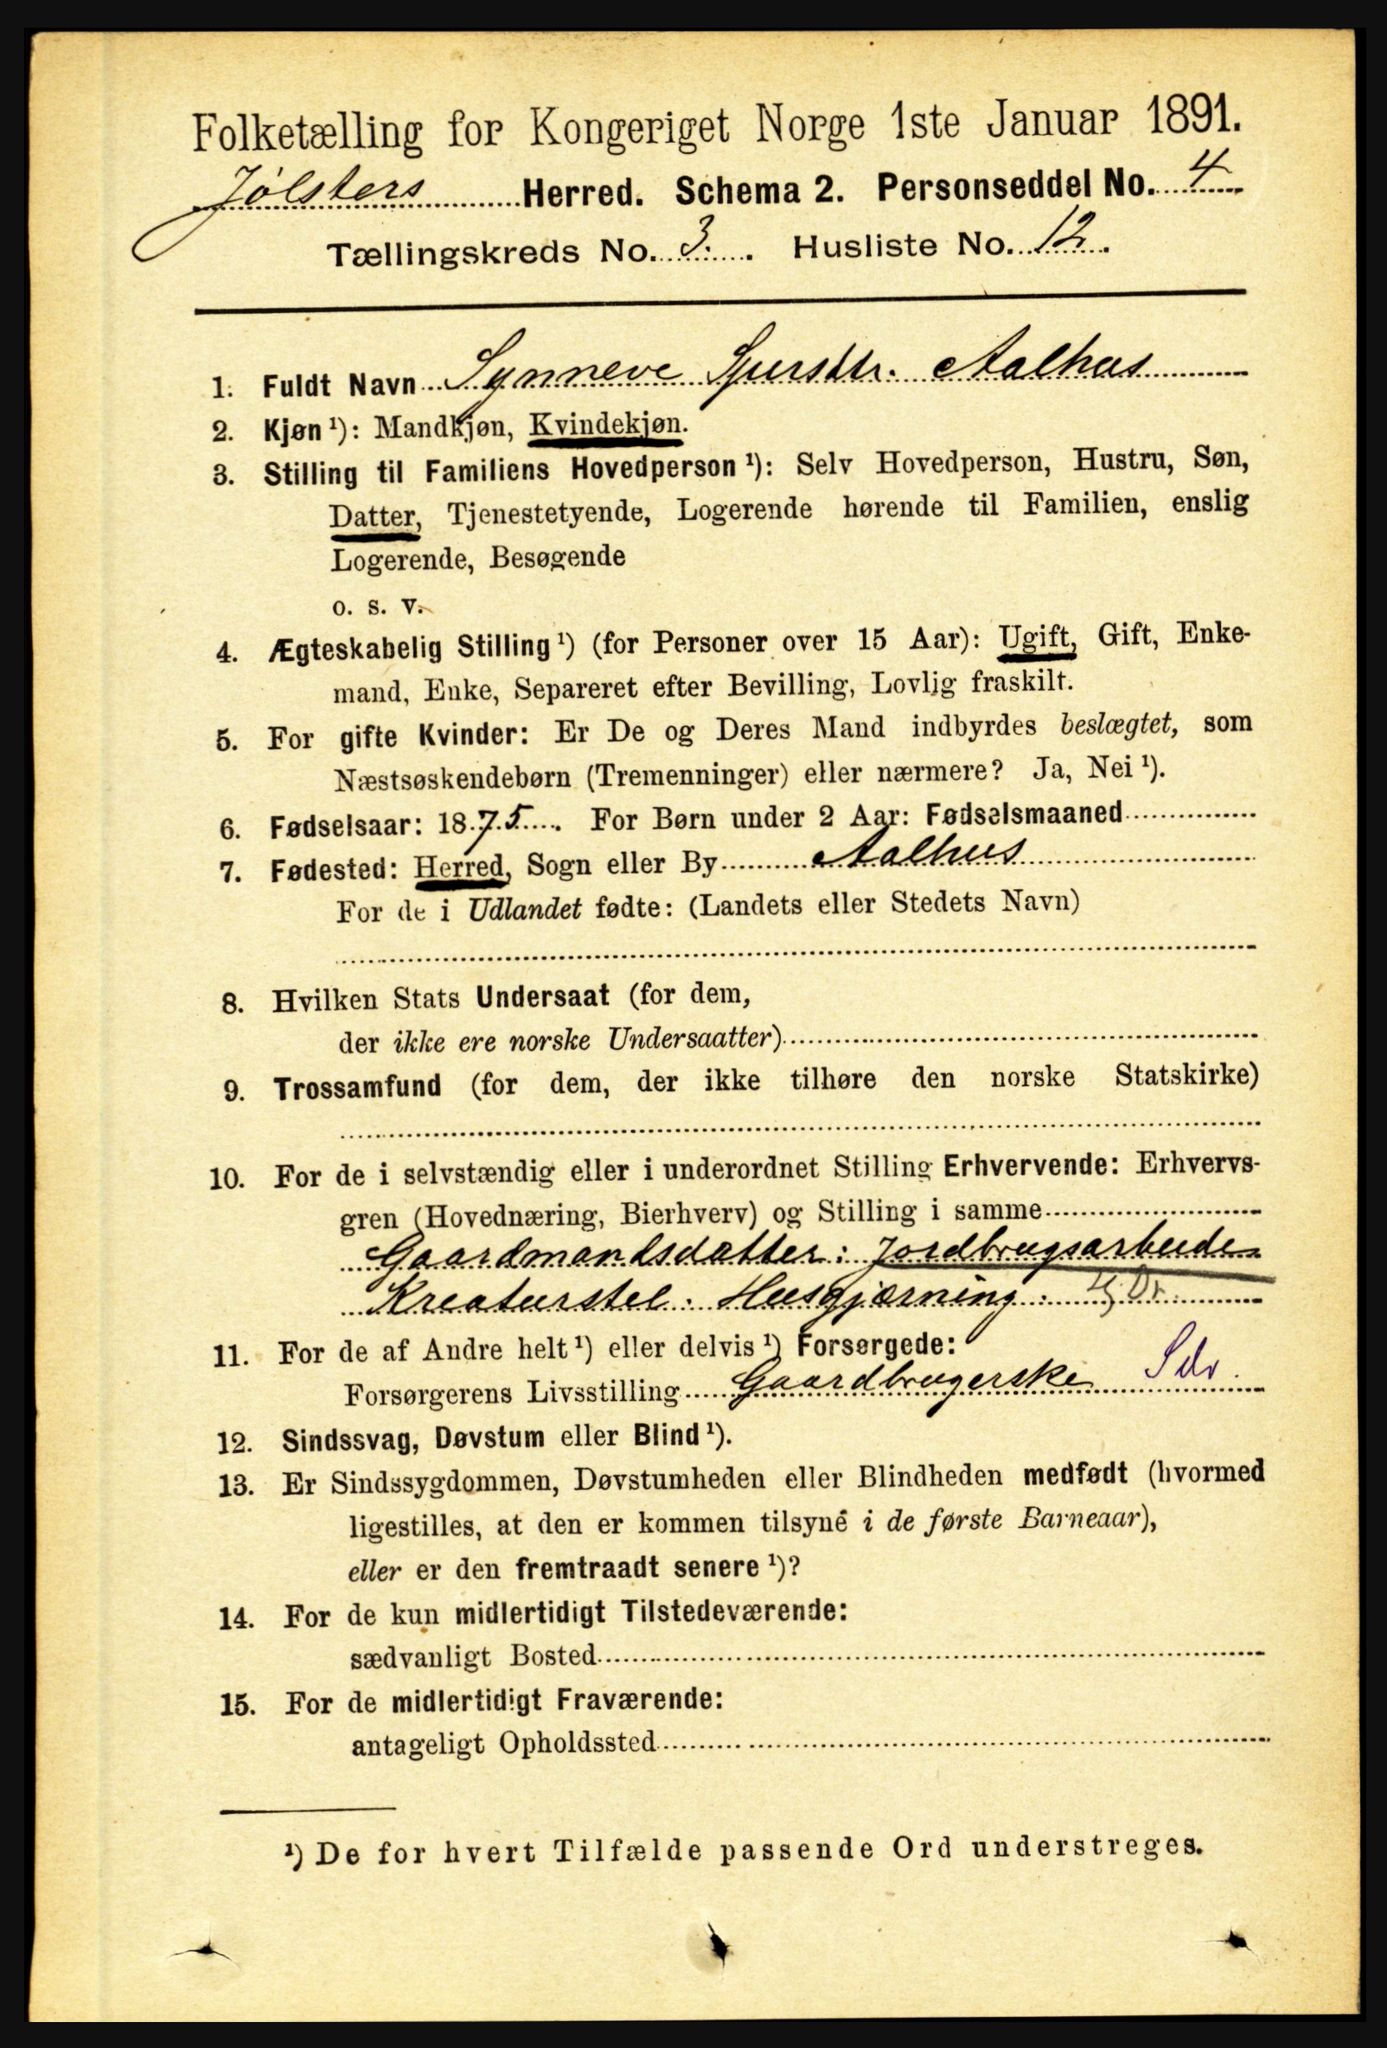 Folketælling for Kongeriget Norge 1ste Januar 1891.
Jølsters Herred. Schema 2. Personseddel No. 4
Tællingskreds No. 3. Husliste No. 12.
1. Fuldt Navn Synneve Sjursdtr. Aalhus
2. Kjøn ¹): Mandkjøn, Kvindekjøn.
3. Stilling til Familiens Hovedperson ¹): Selv Hovedperson, Hustru, Søn,
Datter, Tjenestetyende, Logerende hørende til Familien, enslig
Logerende, Besøgende
o. s. v.
4. Ægteskabelig Stilling ¹) (for Personer over 15 Aar): Ugift, Gift, Enke-
mand, Enke, Separeret efter Bevilling, Lovlig fraskilt.
5. For gifte Kvinder: Er De og Deres Mand indbyrdes beslægtet, som
Næstsøskendebørn (Tremenninger) eller nærmere? Ja, Nei ¹).
6. Fødselsaar: 1875. For Børn under 2 Aar: Fødselsmaaned
7. Fødested: Herred, Sogn eller By Aalhus
For de i Udlandet fødte: (Landets eller Stedets Navn)
8. Hvilken Stats Undersaat (for dem,
der ikke ere norske Undersaatter)
9. Trossamfund (for dem, der ikke tilhøre den norske Statskirke)
10. For de i selvstændig eller i underordnet Stilling Erhvervende: Erhvervs-
gren (Hovednæring, Bierhverv) og Stilling i samme
Gaardmandsdatter: Jordbrugsarbeide
Kreaturstel. Husgjærning.
11. For de af Andre helt ¹) eller delvis ¹) Forsørgede:
Forsørgerens Livsstilling Gaardbrugerske Selv.
12. Sindssvag, Døvstum eller Blind ¹).
13. Er Sindssygdommen, Døvstumheden eller Blindheden medfødt (hvormed
ligestilles, at den er kommen tilsyne i de første Barneaar),
eller er den fremtraadt senere ¹)?
14. For de kun midlertidigt Tilstedeværende:
sædvanligt Bosted
15. For de midlertidigt Fraværende:
antageligt Opholdssted
¹) De for hvert Tilfælde passende Ord understreges.